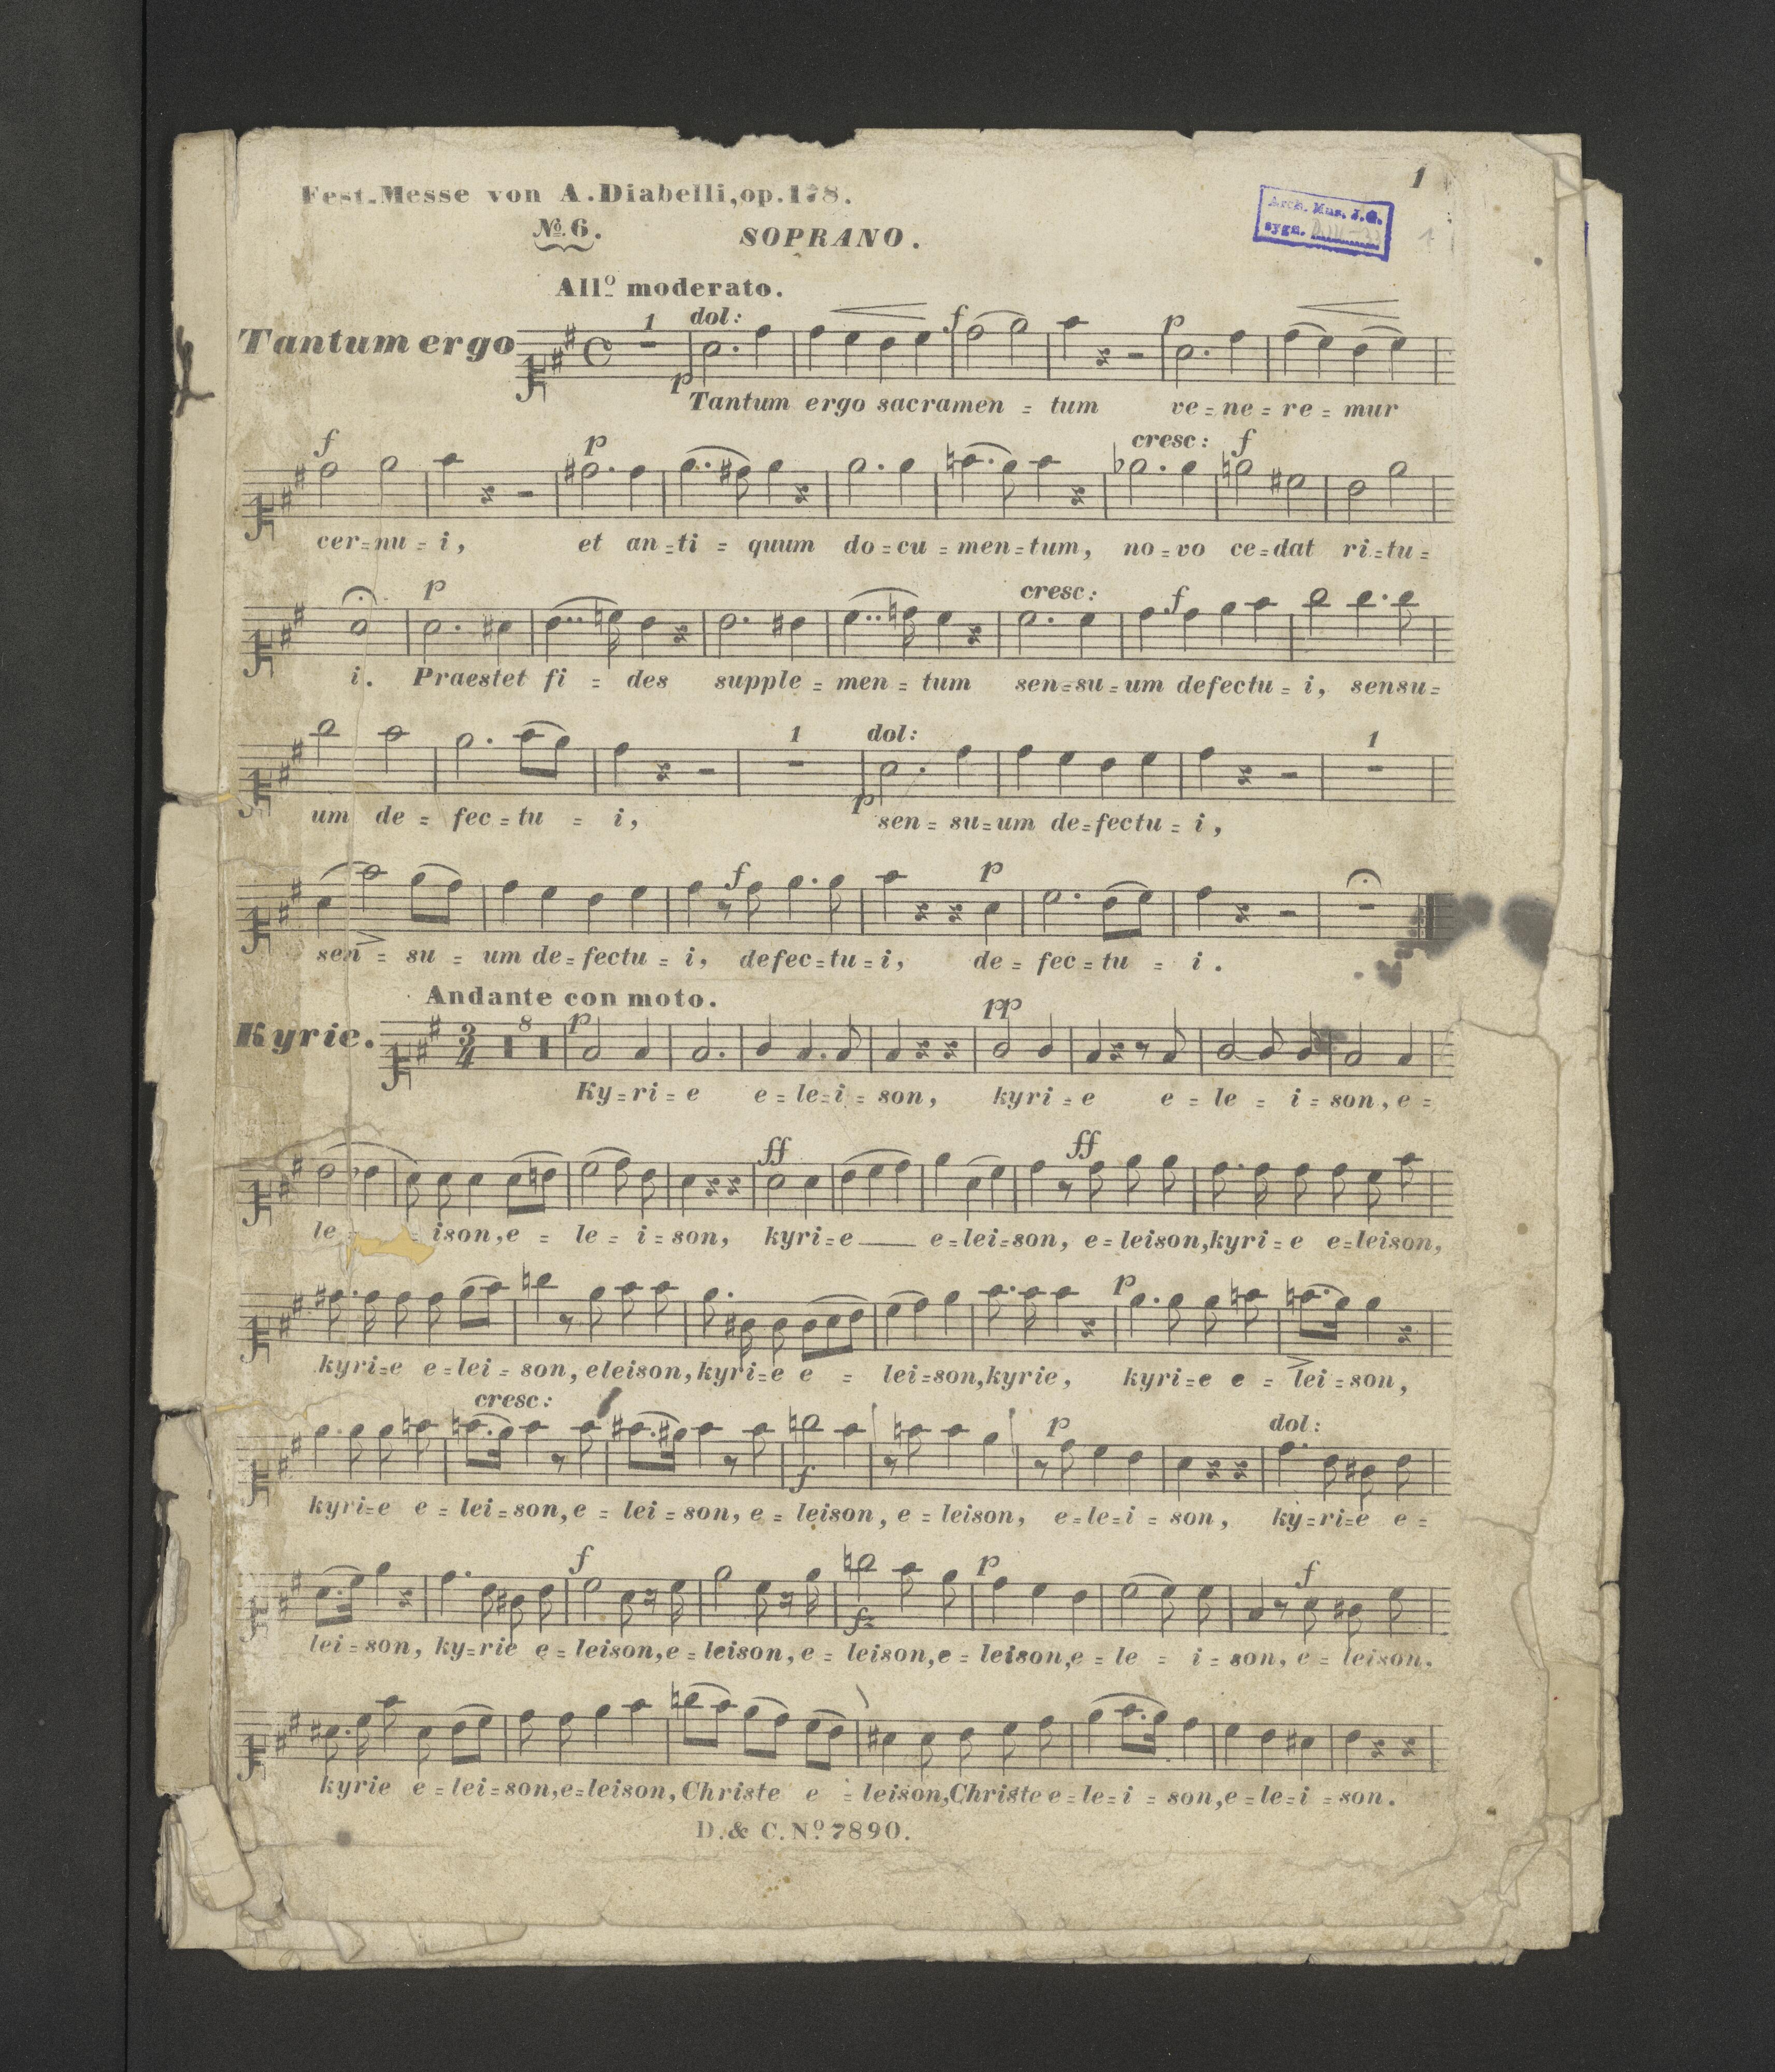 1
Fest-Messe von A. Diabelli, op. 178.
Arch. Mus. J.G.
sygn.
1
No. 6. SOPRANO.
Allo. moderato.
Tantum ergo
1 dol: f p
p
Tantum ergo sacramen = tum ve = ne = re = mur
f p cresc: f
cer = nu = i, et an = ti = quum do = cu = men = tum, no = vo ce = dat ri = tu =
p cresc: f
i. Praestet fi = des supple = men = tum sen = su = um defectu = i, sensu =
1 dol: 1
p
um de = fec = tu = i, sen = su = um de = fectu = i,
f p
sen = su = um de = fectu = i, defec = tu = i, de = fec = tu = i.
Andante con moto.
Kyrie.
3/4 8 p pp
Ky = ri = e e = le = i = son, kyri = e e = le = i = son, e =
ff ff
le = = ison, e = le = i = son, kyri = e e = lei = son, e = leison, kyri = e e = leison,
p
kyri = e e = lei = son, eleison, kyri = e e = lei = son, kyrie, kyri = e e = lei = son,
cresc: f p dol:
kyri = e e = lei = son, e = lei = son, e = leison, e = leison, e = le = i = son, ky = ri = e e =
f fz p f
lei = son, ky = rie e = leison, e = leison, e = leison, e = leison, e = le = i = son, e = leison,
kyrie e = lei = son, e = leison, Christe e = leison, Christe e = le = i = son, e = le = i = son.
D. & C. No. 7890.